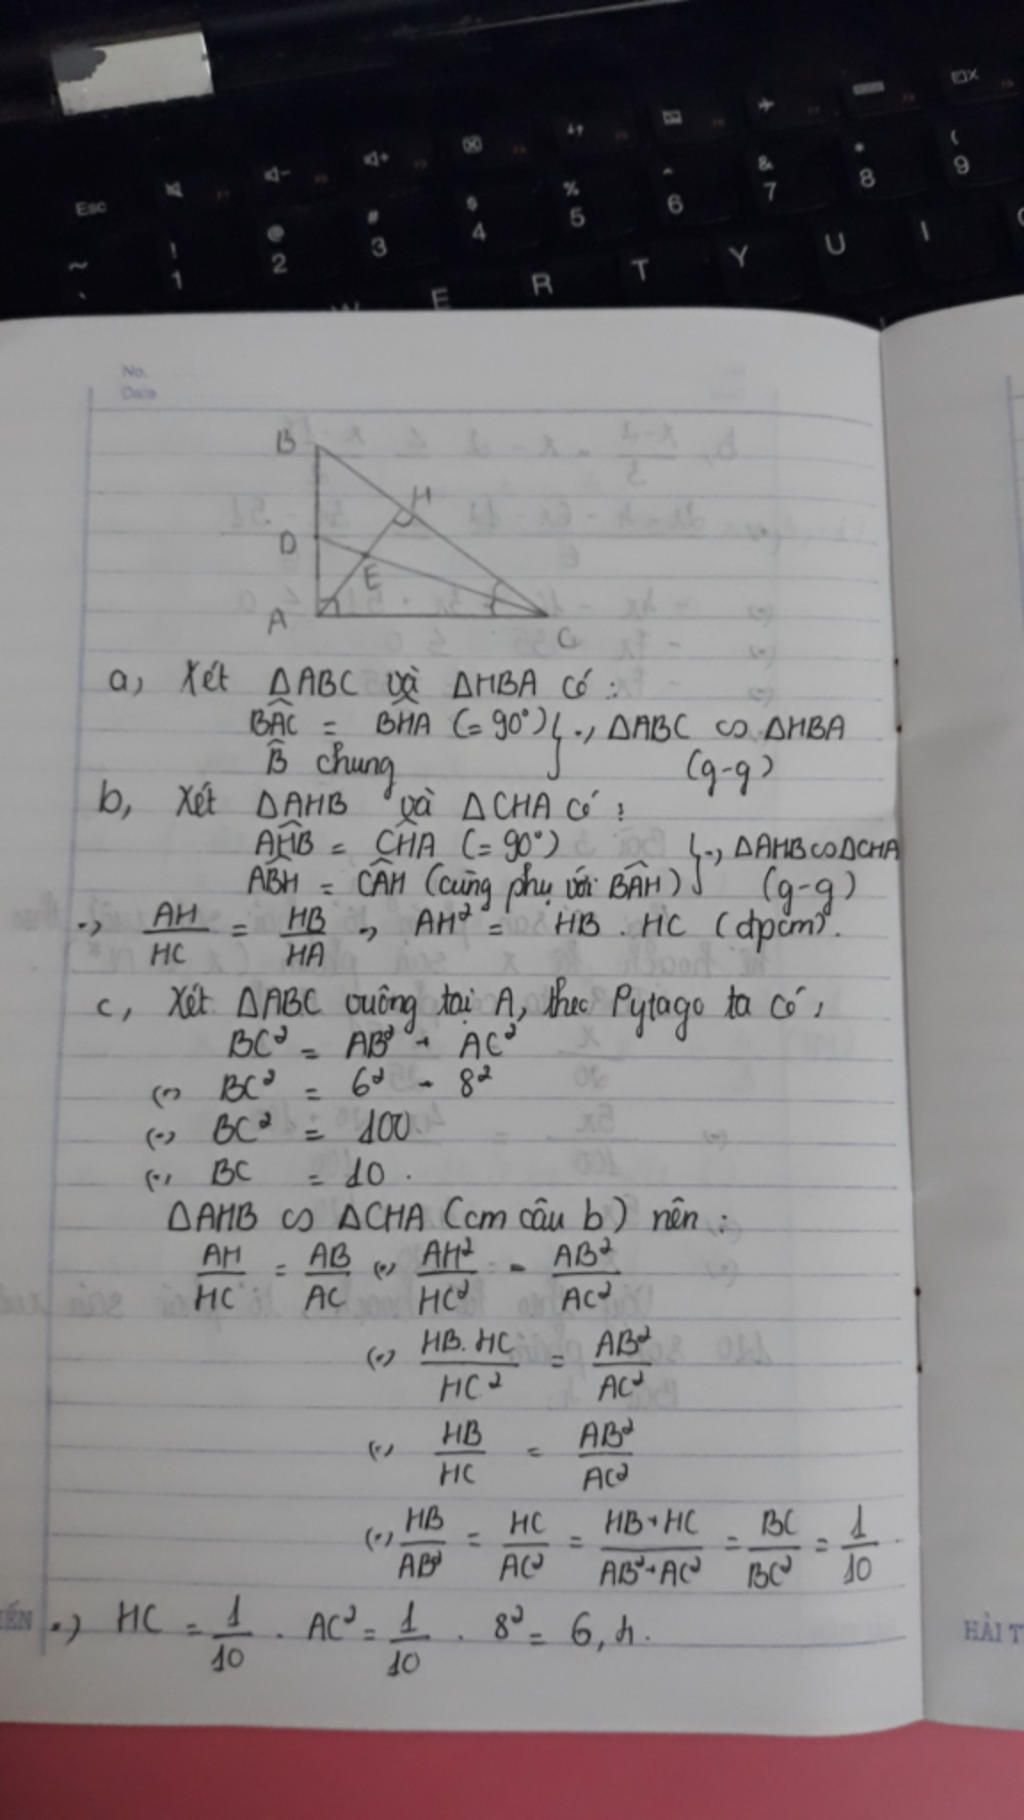 Esc
! 1
@ 2
# 3
$ 4
% 5
^ 6
& 7
* 8
( 9
~ `
E R T Y U I
No.
Date
B
H
D
E
A
C
a, Xét ΔABC và ΔHBA có:
BÂC = BĤA (= 90°) } ⇒ ΔABC ∽ ΔHBA
B̂ chung (g-g)
b, Xét ΔAHB và ΔCHA có:
AĤB = CĤA (= 90°) } ⇒ ΔAHB ∽ ΔCHA
AB̂H = CÂH (cùng phụ với BÂH) (g-g)
⇒ AH/HC = HB/HA ⇒ AH² = HB . HC (đpcm).
c, Xét ΔABC vuông tại A, theo Pytago ta có:
BC² = AB² + AC²
⇔ BC² = 6² + 8²
⇔ BC² = 100
⇔ BC = 10.
ΔAHB ∽ ΔCHA (cm câu b) nên:
AH/HC = AB/AC ⇔ AH²/HC² = AB²/AC²
⇔ HB.HC/HC² = AB²/AC²
⇔ HB/HC = AB²/AC²
⇔ HB/AB² = HC/AC² = HB+HC/AB²+AC² = BC/BC² = 1/10
⇒ HC = 1/10 . AC² = 1/10 . 8² = 6,4.
HẢI T